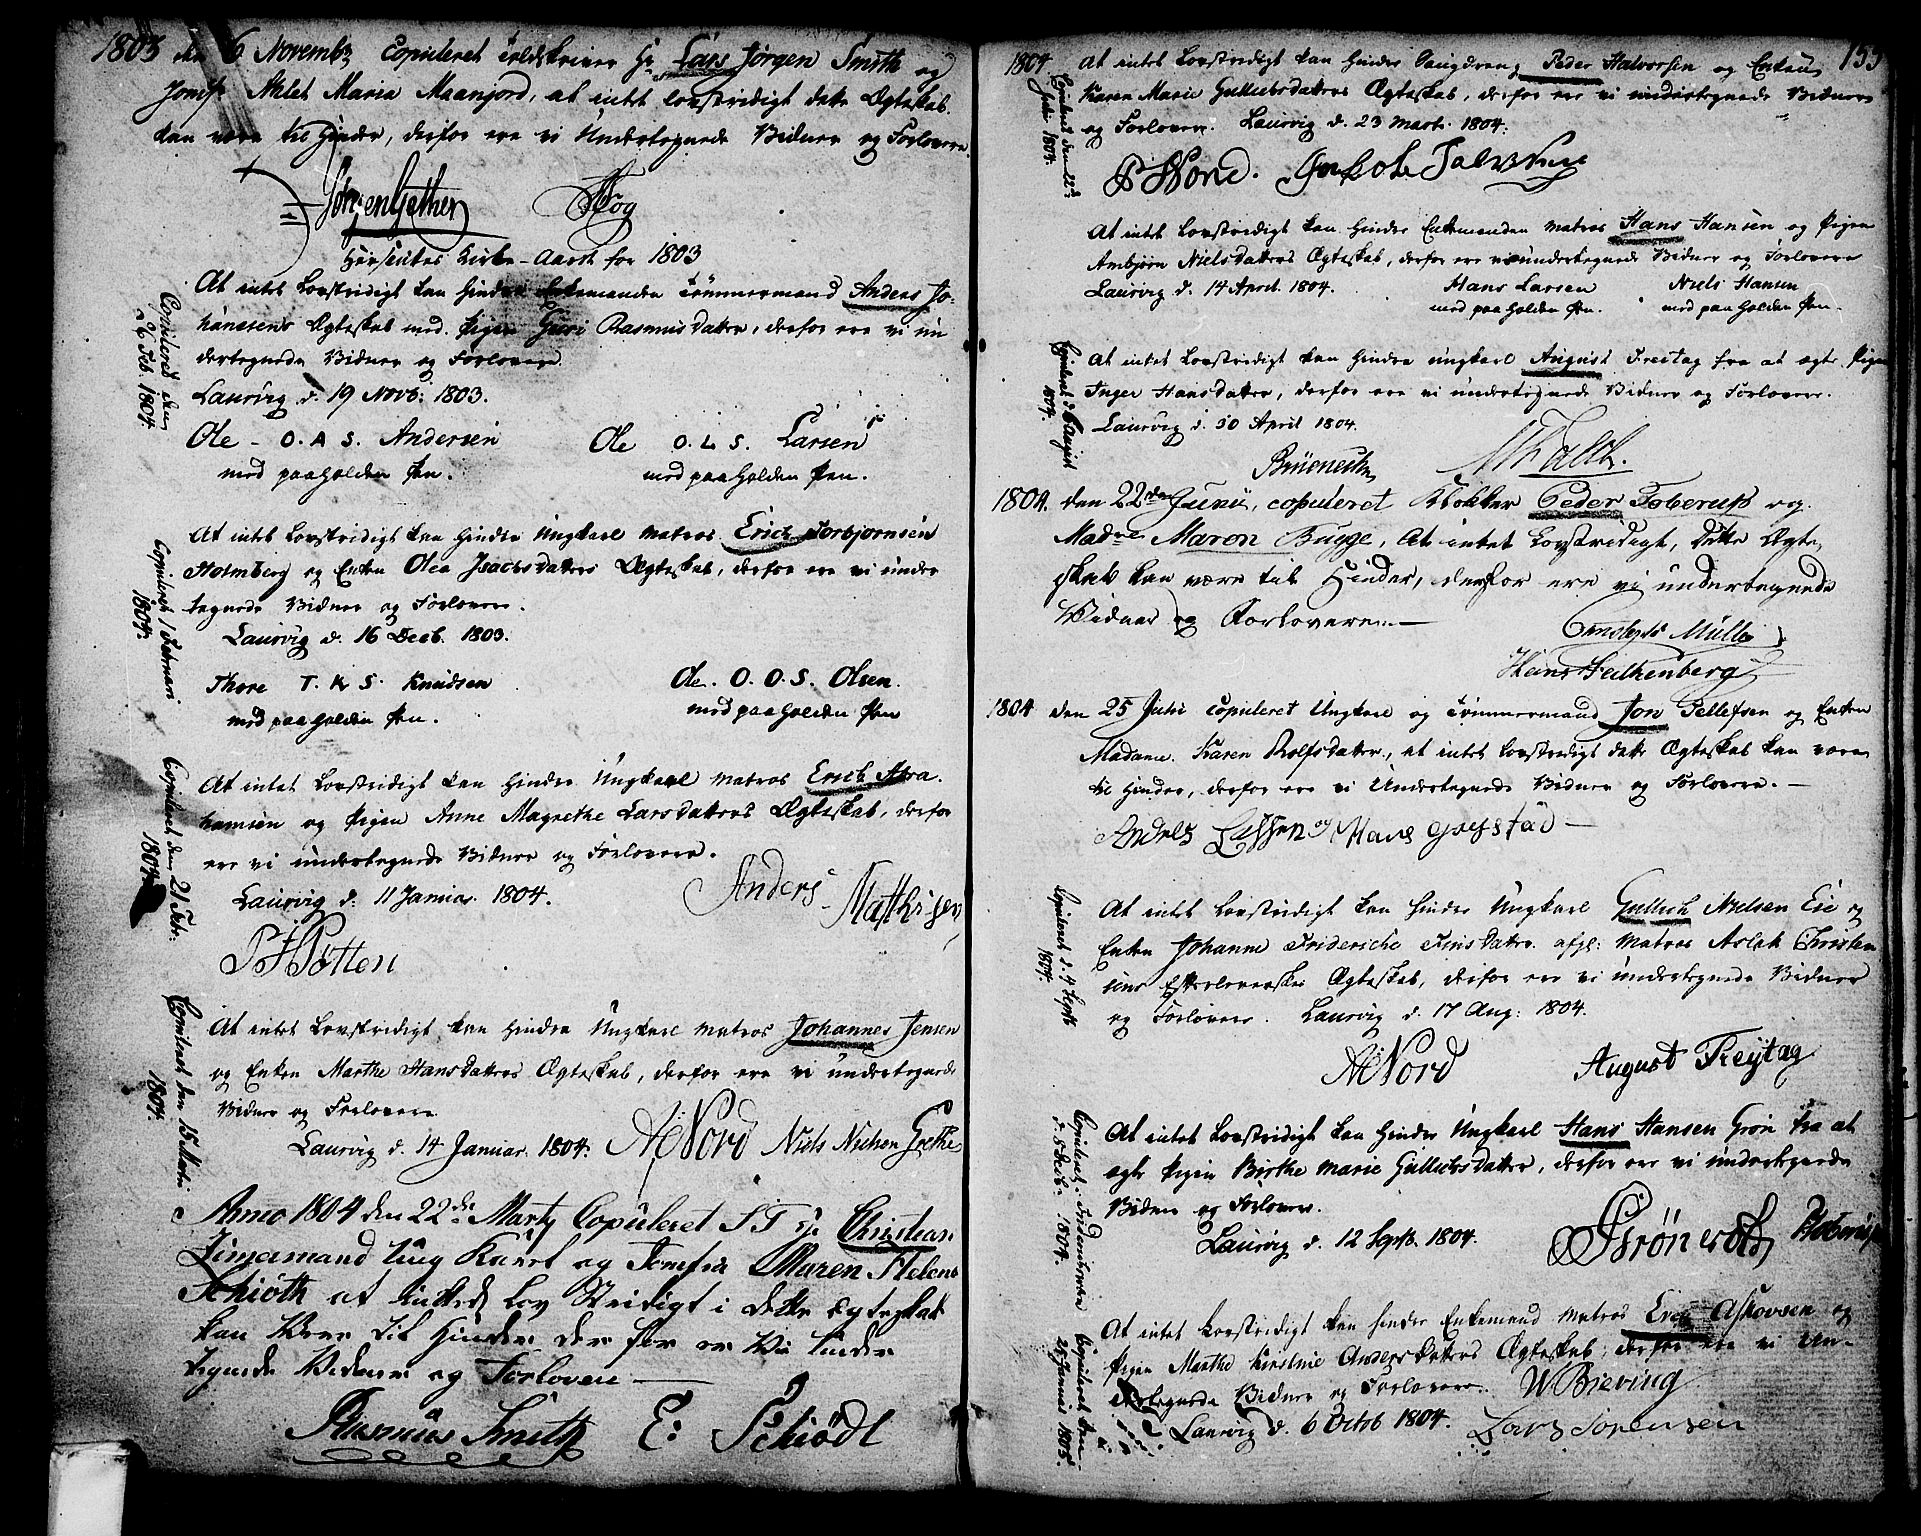 1803 den 6 Novembr Copuleret Toldskriver Hr Lars Jørgen Smith og
Jomfr Aklet Maria Maanjord, at intet lovstridigt dette Ægteskab
kan være til Hinder, derfor ere vi Undertegnede Vidner og Forlovere
Jørgen Gether
Kirke-Aaret for 1803
At intet Lovstridigt kan hindre Enkemanden Tømmermand Anders Jo-
hanesens Ægteskab med Pigen Guri Rasmusdatter, derfor ere vi un
dertegnede Vidner og Forlovere
Laurvig d. 19 Novb: 1803.
Copuleret den
26 Feb. 1804
Ole - O. A. S. Andersen
med paaholden Pen.
Ole O. L. S. Larsen
med paaholden Pen.
At intet Lovstridigt kan hindre Ungkarl Matros Erich Torbjørnsen
Holmberg og Enken Olea Isachsdatters Ægteskab, derfor ere vi under
tegnede Vidner og Forlovere.
Laurvig d. 16 Decb. 1803.
Copuleret 1 Februari
1804.
Thore T. K. S. Knudsen
med paaholden Pen.
Ole. O. O. S. Olsen.
med paaholden Pen
At intet Lovstridigt kan hindre Ungkarl Matros Erich Abra
hamsen og Pigen Anne Magrethe Larsdatters Ægteskab, derfor
ere vi undertegnede Vidner og Forlovere.
Laurvig d. 11 Januar. 1804.
Copuleret den 21 Febr:
1804.
Anders Mathisen
P H Potten
At intet Lovstridigt kan hindre Ungkarl Matros Johannes Jensen
og Enken Marthe Hansdatters Ægteskab, derfor ere vi undertegnede
Vidner og Forlovere
Laurvig d. 14 Januar. 1804.
Copuleret den 15 Martii
1804.
A Nord Niels Nielsen Grethe
Anno 1804 den 22de Marty Copuleret S T Hr Christian
Zimermand Ung Karl og Jomfru Maren Helene
Schiøth at Intted Lov Stridigt i dette Egteskab
kan Være til Hinder der for er Vii Under
tegnede Vidner og Forlovere
Rasmus Smith E: Schiødt
155
1804. At intet Lovstridigt kan hindre Peder Halvorsen og Enken
Karen Marie Gulliksdatters Ægteskab, derfor ere vi undertegnede Vidner
og Forlovere. Laurvig d. 23 Mart. 1804.
Copuleret den 22de
Juli 1804.
P Nord.
At intet Lovstridigt kan hindre Enkemanden Matros Hans Hansen og Pigen
Anbjørn Nielsdatters Ægteskab, derfor ere vi undertegnede Vidner og Forlovere
Laurvig d. 14 April. 1804.
Hans Larsen
med paaholden Pen.
Niels Hansen
med paaholden Pen.
At intet Lovstridigt kan hindre Ungkarl August Freitag fra at ægte Pigen
Inger Hansdatter, derfor ere vi undertegnede Vidner og Forlovere.
Laurvig d. 30 April 1804.
1804.
1804. den 22den Junii, copuleret Klokker Peder Toberup og
Madme Maren Bugge, At intet Lovstridigt, dette Ægte
skab kan være til Hinder, derfor ere vi undertegnede
Vidner og Forlovere.
Müller
Hans Falkenberg
1804 den 25 Juli copuleret Ungkarl og Tømmermand Jon Tellefsen og Enken
Madame Karen Rolfsdatter, at intet Lovstridigt dette Ægteskab kan være
til Hinder, derfor ere vi Undertegnede Vidner og Forlovere.
Anders Hans
At intet Lovstridigt kan hindre Ungkarl Gullich Nielsen Eie og
Enken Johanne Frideriche Finsdatter afgl: Matros Aslak Christen
sens Efterleverskes Ægteskab, derfor ere vi undertegnede Vidner
og Forlovere. Laurvig d. 17 Aug: 1804.
Copuleret d. 4 Septb
1804.
A Nord August Freytag
At intet Lovstridigt kan hindre Ungkarl Hans Hansen Grøn fra at
ægte Pigen Birthe Marie Gulliksdatter, derfor ere vi undertegnede
Vidner og Forlovere.
Laurvig d. 12 Septb. 1804.
Copuleret i
d. 5 Decb. 1804.
Grønvold
At intet Lovstridigt kan hindre Enkemand Matros Erich Aslovsen og
Pigen Marthe Kirstine Andersdatters Ægteskab, derfor ere vi Un-
dertegnede Vidner og Forlovere.
Laurvig d. 6 Octob 1804.
Copuleret den
Januari 1805.
W Bieving
Lars Sørensen